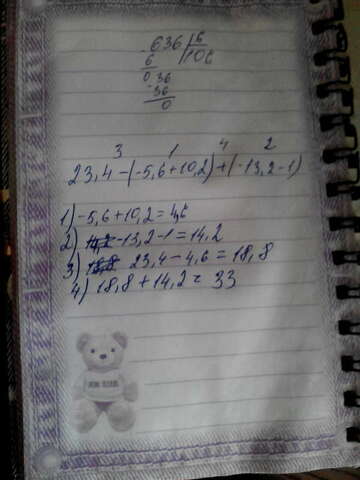 636 | 6
6 106
0 36
- 36
0
3 1 4 2
23,4-(-5,6+10,2)+(-13,2-1)
1) -5,6+10,2=4,6
2) -13,2-1=14,2
3) 23,4-4,6=18,8
4) 18,8+14,2=33